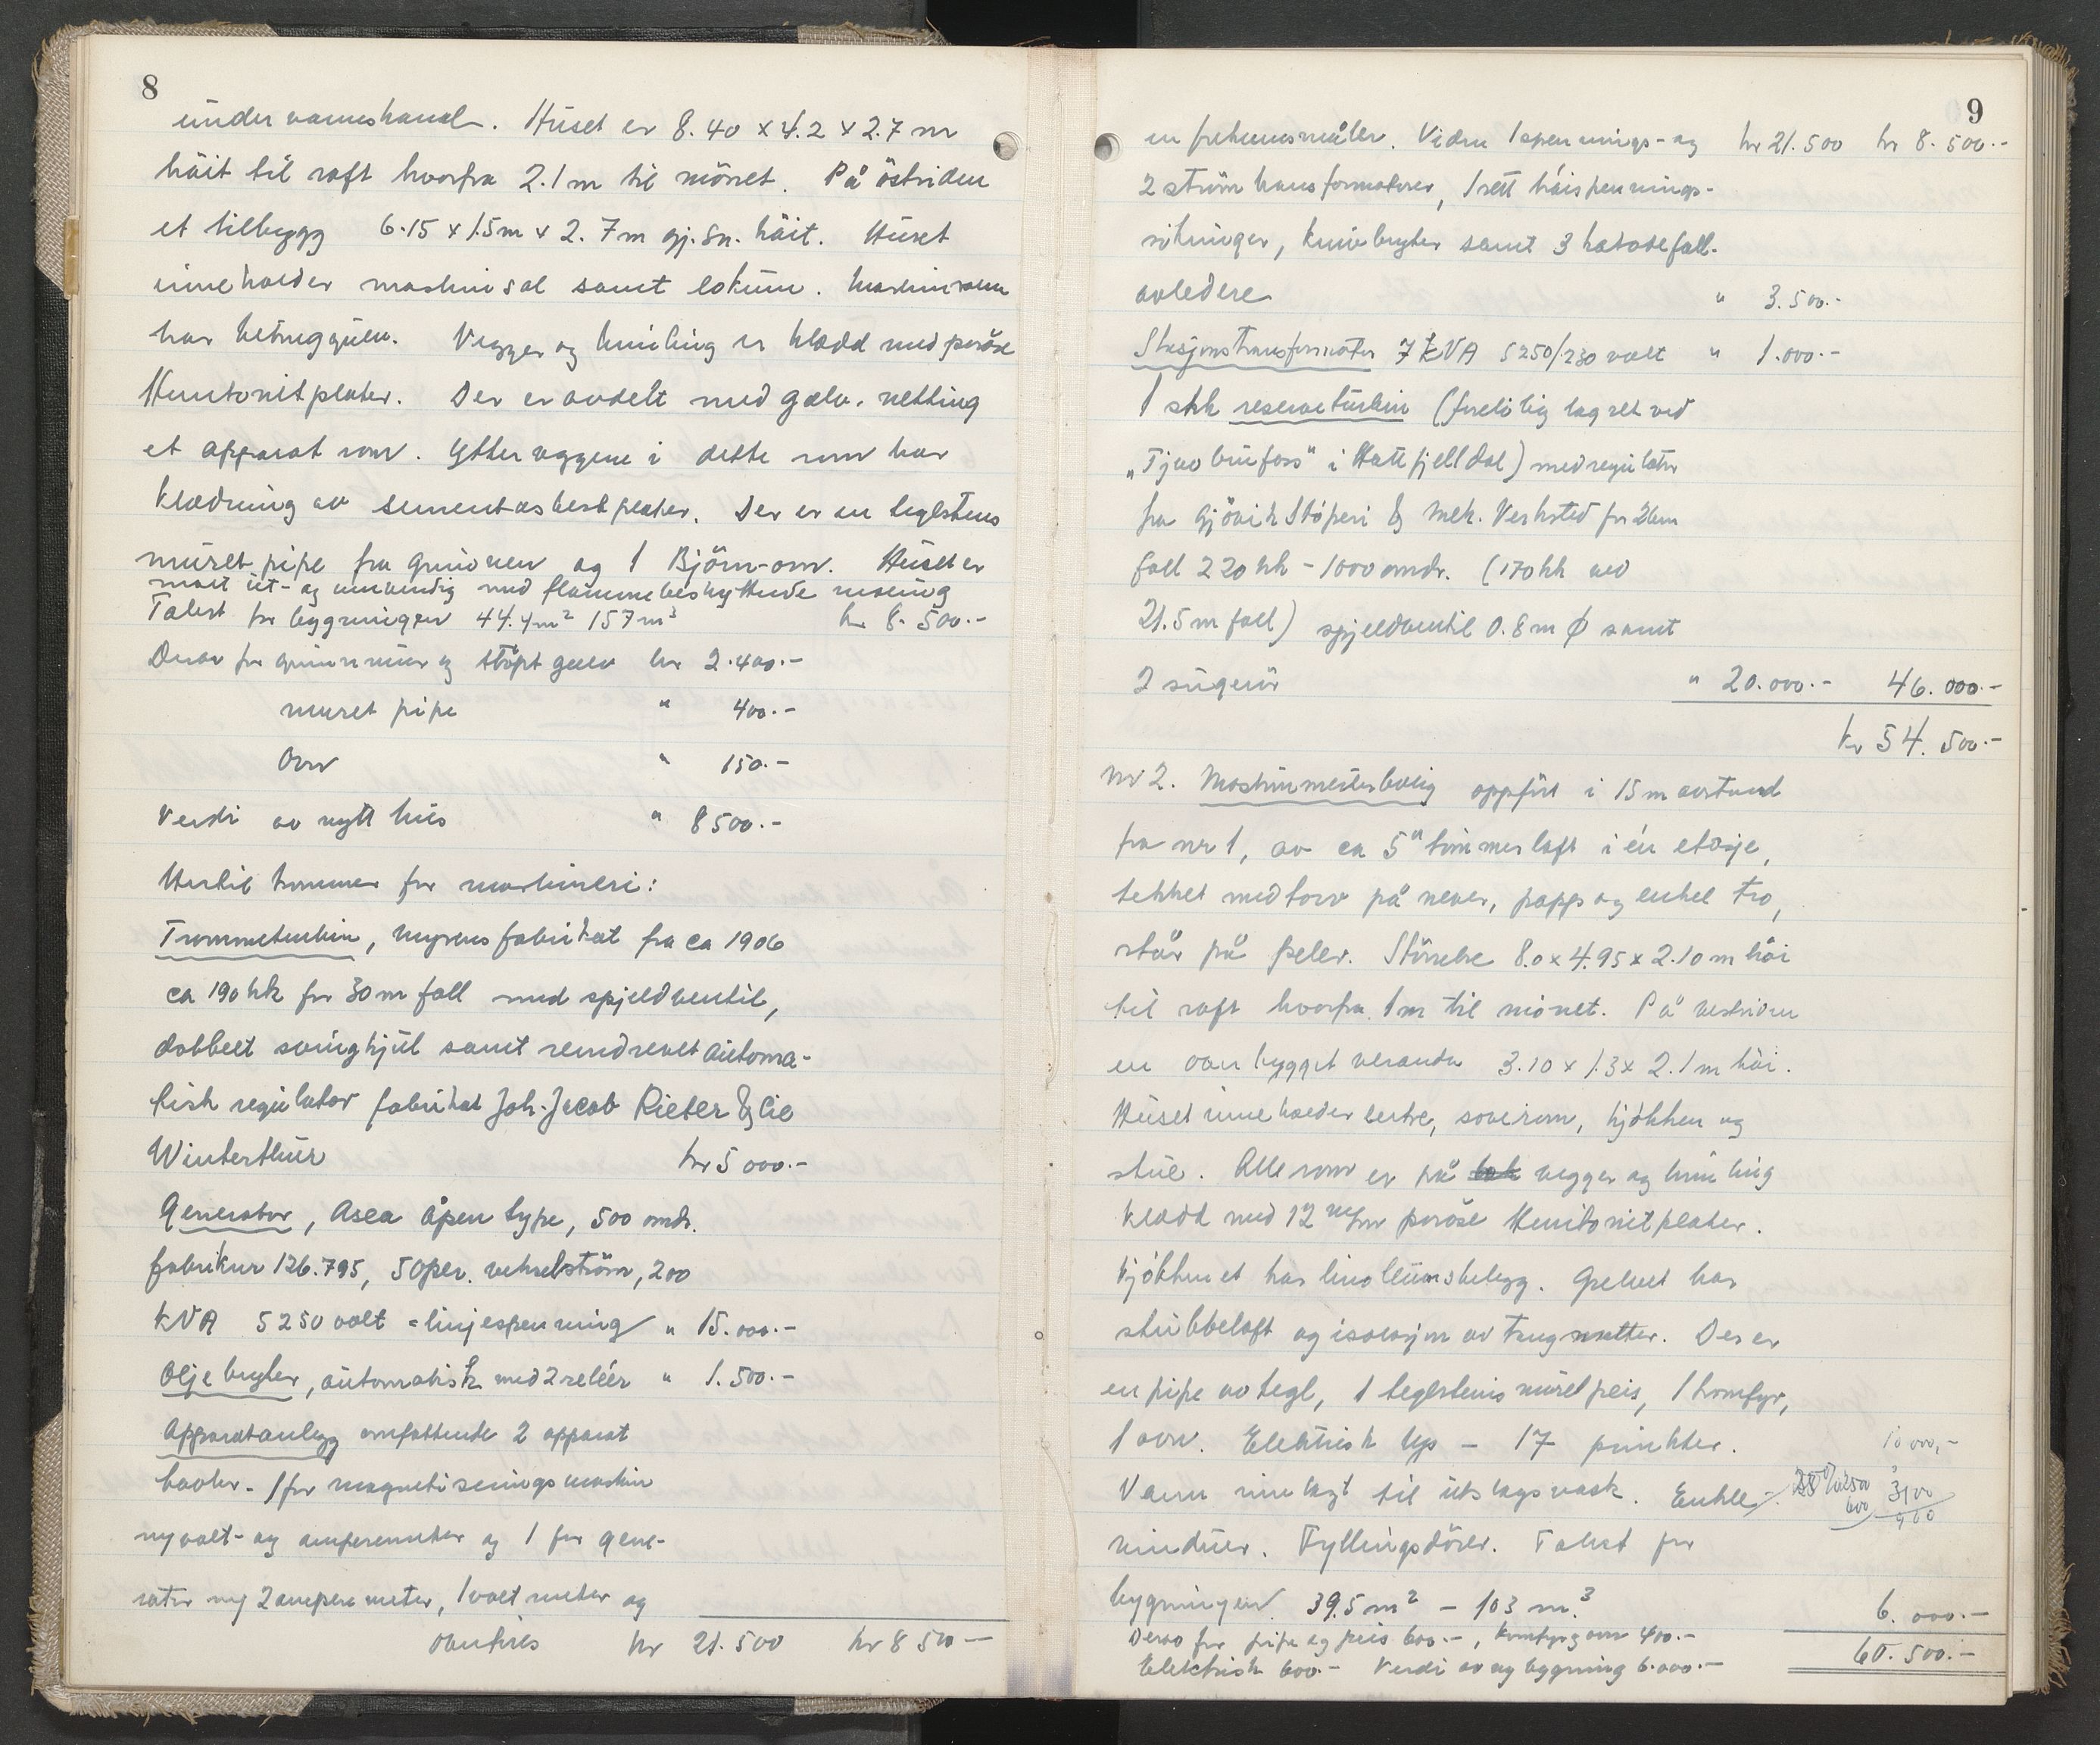 8
under vannshandel. Huset er 8.40 x 4.2 x 2.7 m
höit til raft hvorfra 2.1 m til mönet. På östsiden
et tilbygg 6.15 x 1.5m x 2.7m gj.sn. höit. Huset
inneholder maskinsal samt lokum. Maskinrom
har betonggulv. Vegger og himling er klædd med poröse
Huntonitplater. Der er avdelt med galv. netting
et apparatrom. Ytterveggene i dette rom har
klædning av sementasbestplater. Der er en teglstens
muret pipe fra grunnen og 1 Björn-ovn. Huset er
malt ut- og innvendig med flammebeskyttende maling
Takst for bygningen 44.4m² 157m³ kr 8.500.-
Derav for grunnmur og stöpt gulv kr 2.400.-
muret pipe " 400.-
Ovn " 150.-
Verdi av nytt hus " 8500.-
Hertil kommer for maskineri:
Trommeturbin, Myrens fabrikat fra ca 1906
ca 190 hk for 30m fall med spjeldventil,
dobbelt svinghjul samt remdrevet automa-
tisk regulator fabrikat Joh. Jacob Rieter & Cie
Winterthur kr 5000.-
Generator, Asea åpen type, 500 omdr.
fabriknr 126.795, 50 per. vekselström, 200
kVA 5250 volt = linjespenning " 15.000.-
Oljebryter, automatisk med 2 reléer " 1.500.-
Apparatanlegg omfattende 2 apparat
tavler - 1 for magnetiseringsmaskin
m/volt- og amperemeter og 1 for gene-
rator m/ 2 amperemeter, 1 voltmeter og
Overföres kr 21.500 kr 8500-
9
en frekvensmåler. Videre 1 spennings- og kr 21.500 kr 8.500.-
2 strömtransformatorer, 1 sett höispennings-
sikringer, knivbryter samt 3 katodefall-
avledere " 3.500.-
Stasjonstransformator 7 kVA 5250/230 volt " 1.000.-
1 stk reserveturbin (forelöbig lagret ved
„Tjuvbrufoss" i Hattfjelldal) med regulator
fra Gjövik Stöperi & Mek. Verksted for 26m
fall 220 hk - 1000 omdr. (170 hk ved
21.5 m fall) spjeldventil 0.8 m Ø samt
2 sugerör " 20.000.- 46.000.-
kr 54.500.-
nr 2. Maskinmesterbolig oppfört i 15 m avstand
fra nr 1, av ca 5" tömmerlaft i én etasje,
tekket med torv på never, papp og enkel tro,
står på peler. Störrelse 8.0 x 4.95 x 2.10 m höi
til raft hvorfra 1m til mönet. På vestsiden
en overbygget veranda 3.10 x 1.3 x 2.1 m höi.
Huset inneholder entre, soverom, kjökken og
stue. Alle rom er på vegger og himling
klædd med 12 m/m poröse Huntonitplater.
Kjökkenet har linoleumsbelegg. Gulvet har
stubbeloft og isolasjon av tangmatter. Der er
en pipe av tegl, 1 teglstens muret peis, 1 komfyr,
1 ovn. Elektrisk lys - 17 punkter. 10000,-
Vann innlagt til utslagsvask. Enkle
600 3100
vinduer. Fyllingsdörer. Takst for
bygningen 39.5 m² - 103 m.³ 6.000.-
Derav for pipe og peis 600.-, komfyr og ovn 400.-
60.500.-
Elektrisk 600.- Verdi av ny bygning 6.000.-